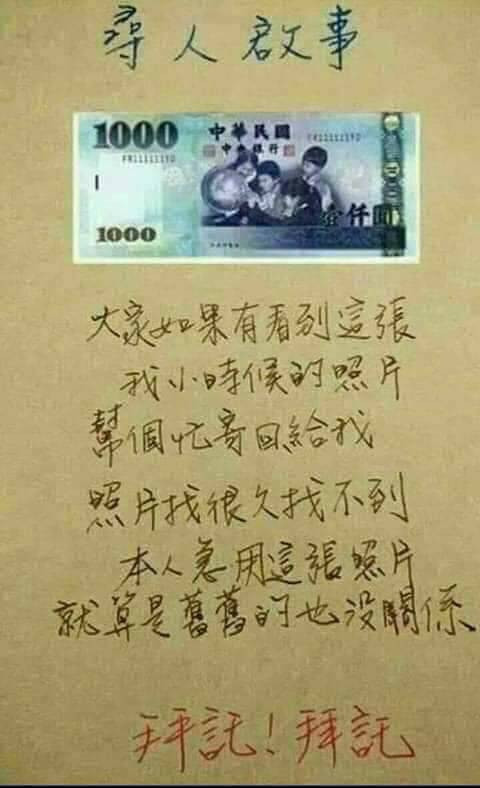 尋人啟事
1000
中華民國
FR11111119Z
中央銀行
FR11111119Z
壹仟圓
1000
大家如果有看到這張
我小時候的照片
幫個忙寄回給我
照片找很久找不到
本人急用這張照片
就算是舊舊的也沒關係
拜託！拜託